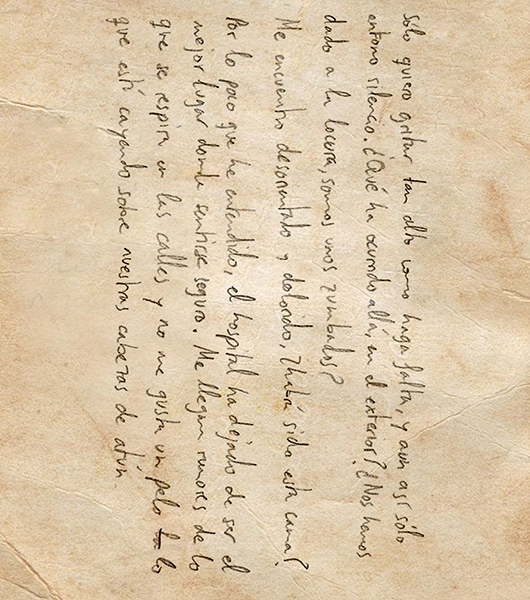 Sólo quiero gritar tan alto como haga falta, y aun así sólo
entono silencio. ¿Qué ha ocurrido allá, en el exterior? ¿Nos hemos
dado a la locura, somos unos zumbados?
Me encuentro desorientado y dolorido, ¿habrá sido esta cama?
Por lo poco que he entendido, el hospital ha dejado de ser el
mejor lugar donde sentirse seguro. Me llegan rumores de lo
que se respira en las calles y no me gusta un pelo lo
que está cayendo sobre nuestras cabezas de atún.